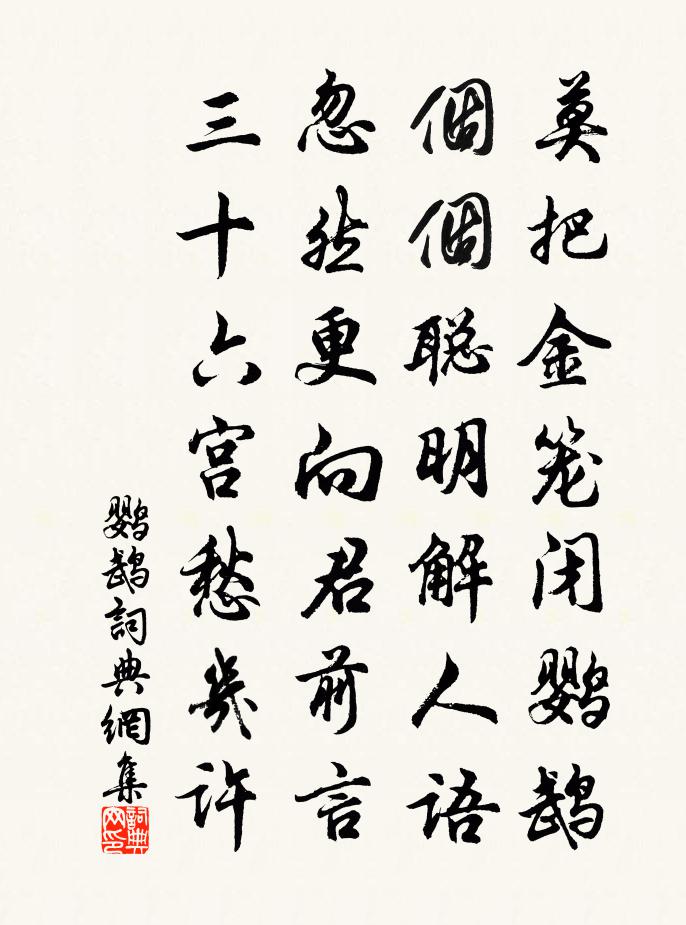 莫把金笼闭鹦鹉
個個聪明解人语
忽然更向君前言
三十六宫愁幾许
鹦鹉詞典網集
詞典网印